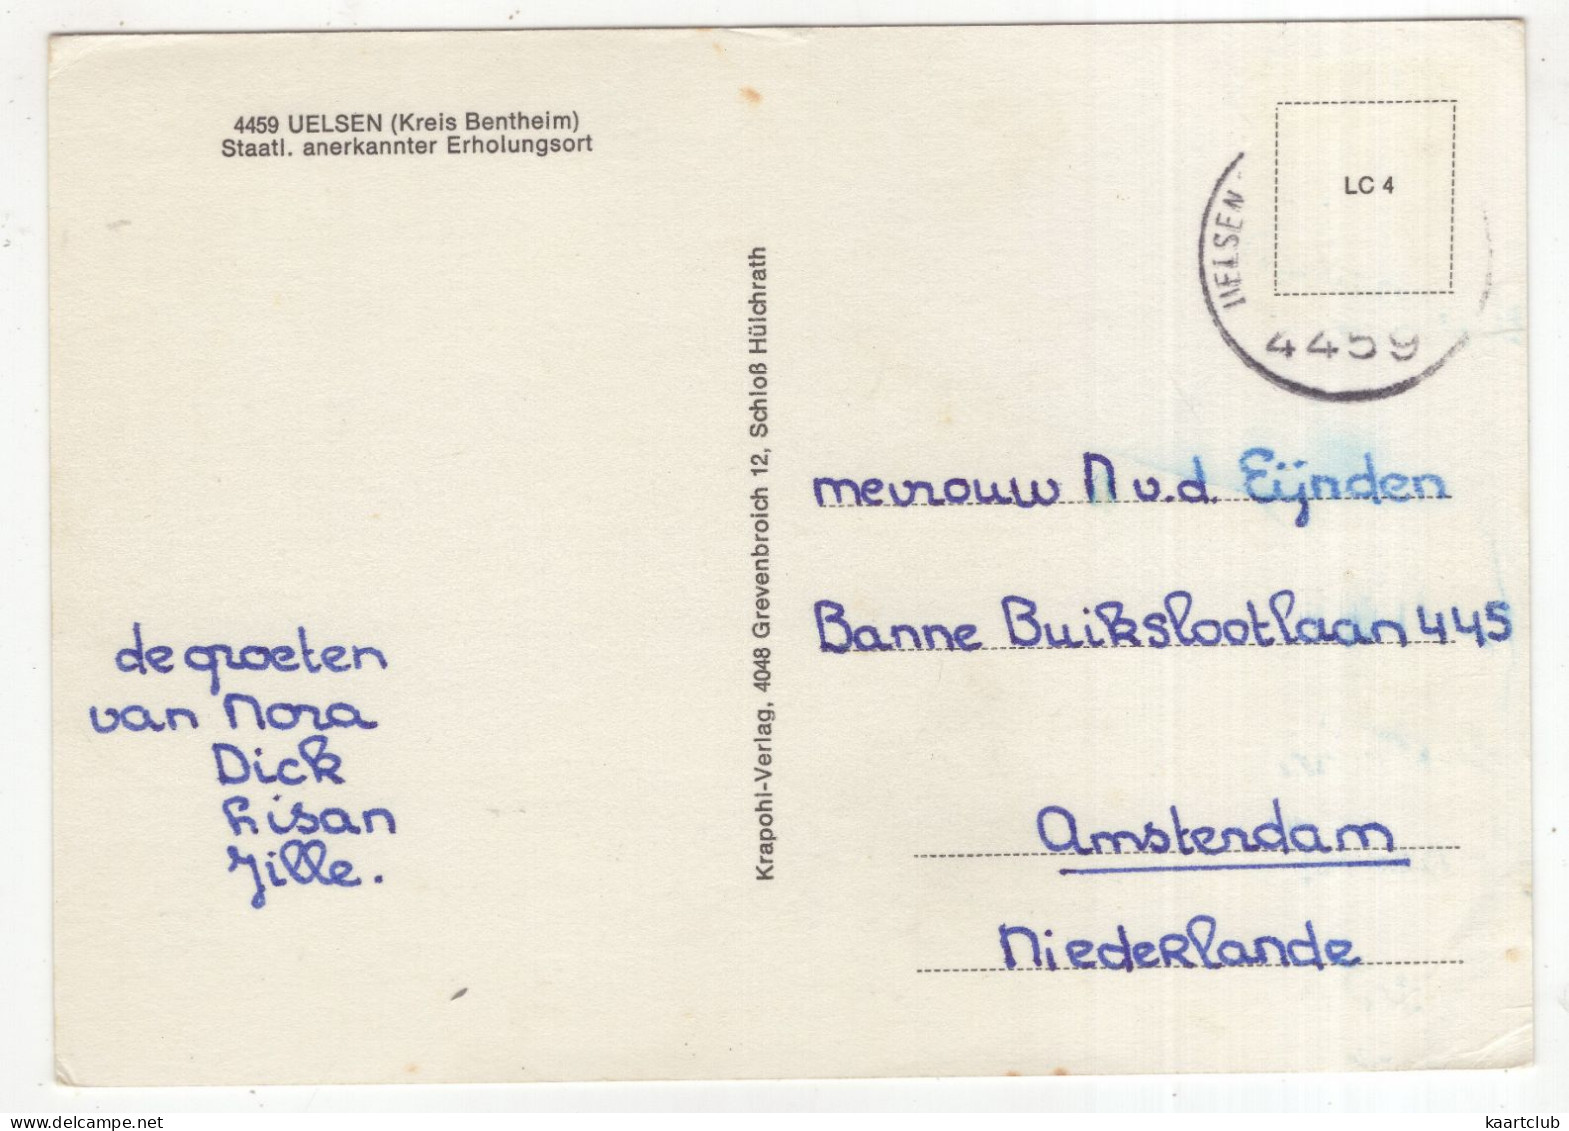 4459 UELSEN (Kreis Bentheim)
Staatl. anerkannter Erholungsort
LC 4
UELSEN
4459
Krapohl-Verlag, 4048 Grevenbroich 12, Schloß Hülchrath
mevrouw N v.d. Eijnden
Banne Buikslootlaan 445
Amsterdam
Niederlande
de groeten
van Nora
Dick
Lisan
Jille.
delcampe.net
kaartclub